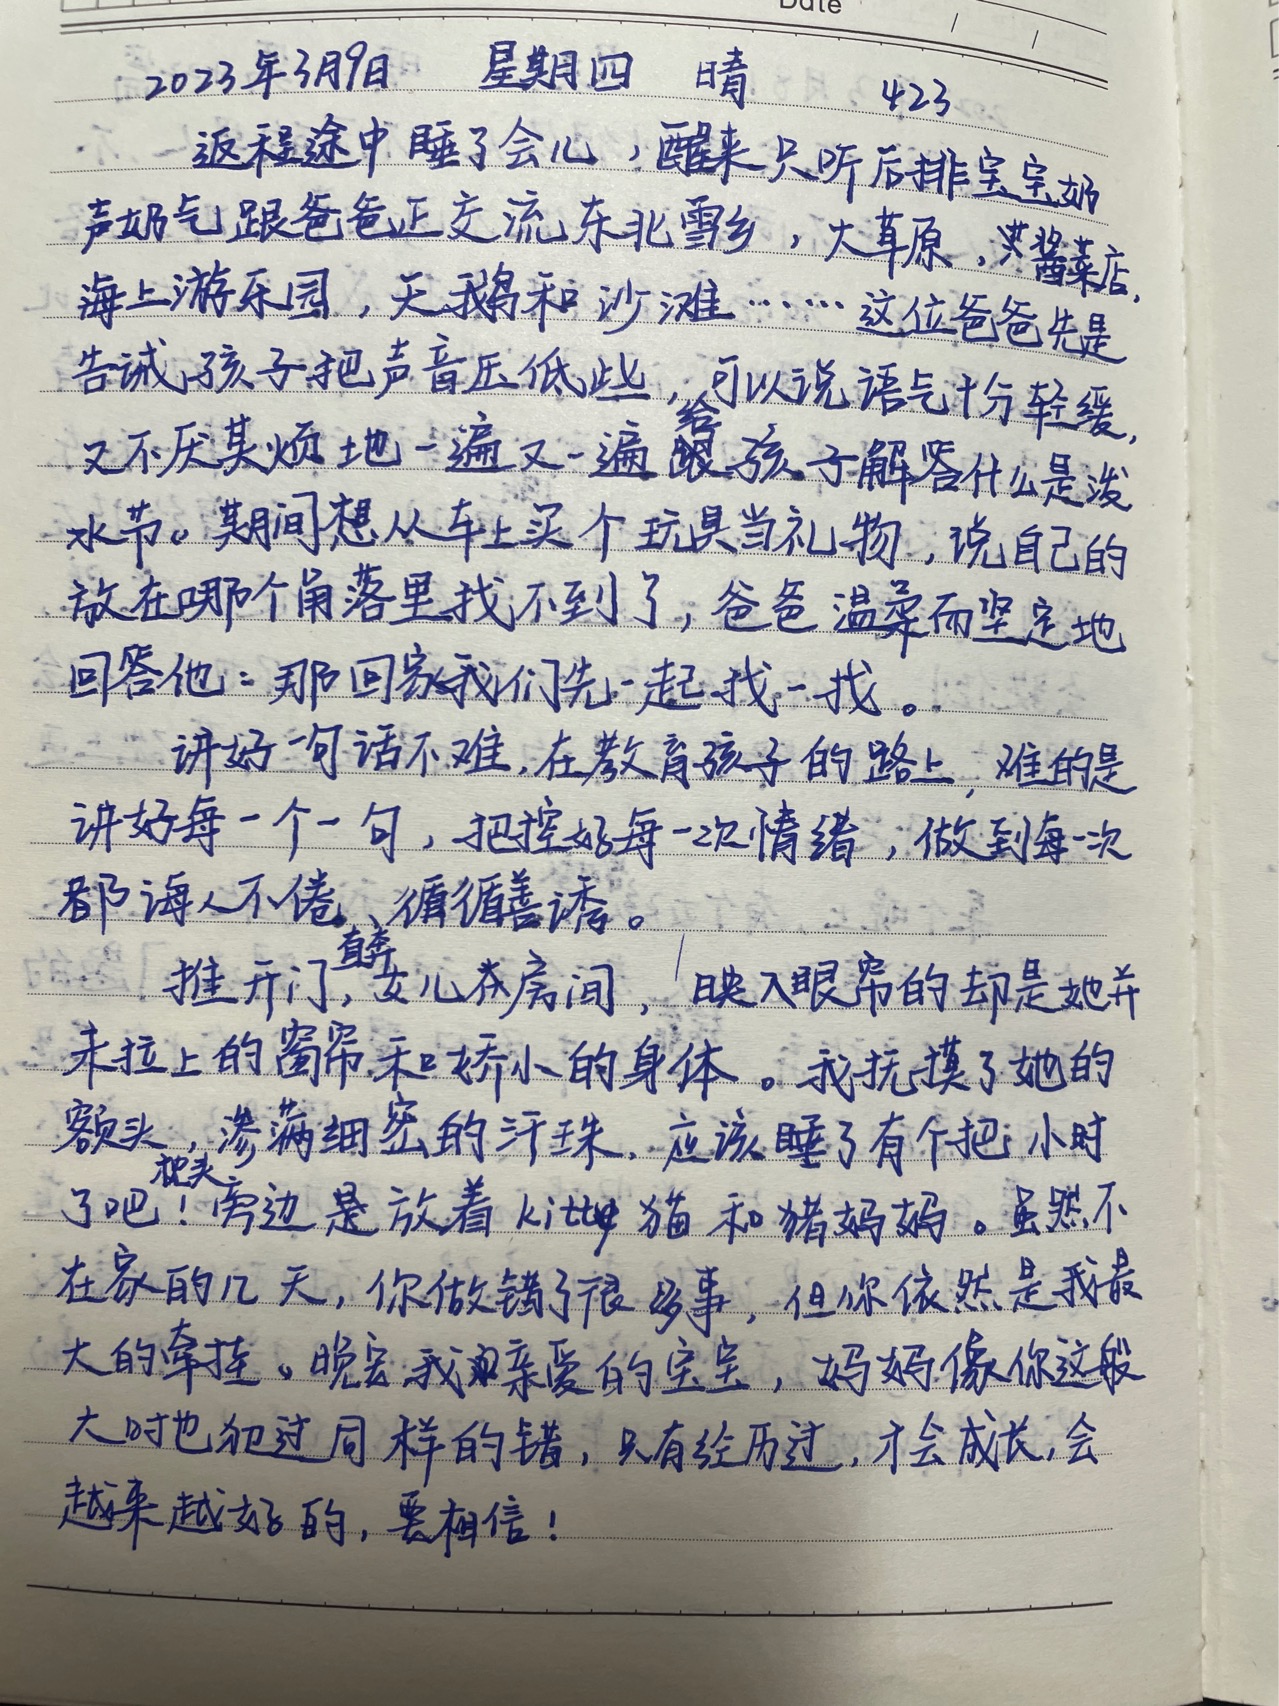 Date
2023年3月9日 星期四 晴 423
返程途中睡了会儿，醒来只听后排宝宝奶
声奶气跟爸爸正交流东北雪乡，大草原，酱菜店，
海上游乐园，天鹅和沙滩……这位爸爸先是
告诫孩子把声音压低些，可以说语气十分轻缓，
又不厌其烦地一遍又一遍给孩子解答什么是泼
水节。期间想从车上买个玩具当礼物，说自己的
放在哪个角落里找不到了，爸爸温柔而坚定地
回答他：那回家我们先一起找一找。
讲好一句话不难，在教育孩子的路上，难的是
讲好每一个一句，把控好每一次情绪，做到每一次
都诲人不倦、循循善诱。
推开门，直奔女儿房间，映入眼帘的却是她并
未拉上的窗帘和娇小的身体。我抚摸了她的
额头，渗满细密的汗珠，应该睡了有个把小时
了吧！枕头旁边是放着kitty猫和猪妈妈。虽然不
在家的几天，你做错了很多事，但你依然是我最
大的牵挂。晚安我亲爱的宝宝，妈妈像你这般
大时也犯过同样的错，只有经历过，才会成长，会
越来越好的，要相信！